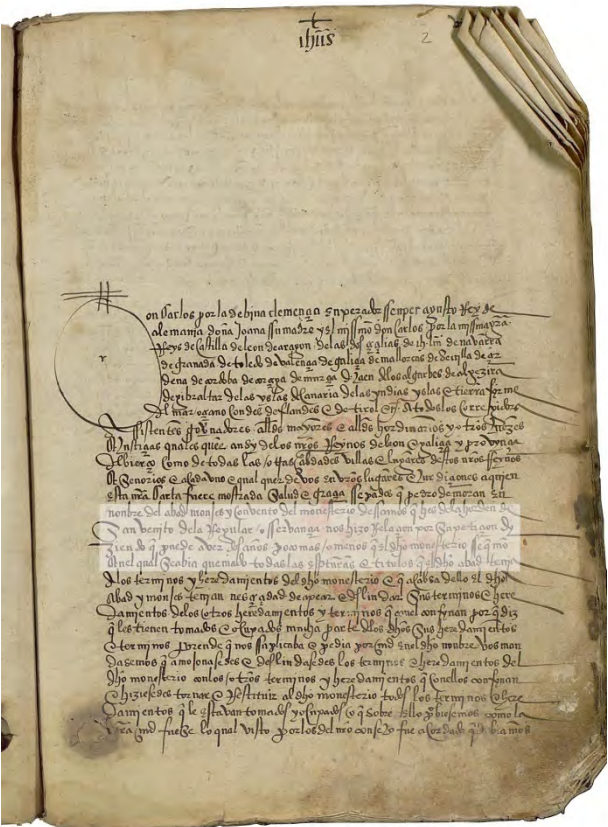 ihũs
2
on Carlos por la debina clemençia enperador ssenper agusto Rey de
alemania doña Joana su madre y el mismo don Carlos por la misma grã
Reys de Castilla de leon de aragon delas dos çeçilias de ihrlm de navarra
de granada de toledo de valençia de galizia de mallorcas de Sevilla de çer
deña de cordoba de corçega de murçia de Jaen delos algarbes de algezira
de gibraltar delas yslas de Canaria delas yndias yslas e tierra firme
del mar oçeano condes de flandes e de tirol etc. A todos los corregidores
asistentes governadores alldes mayores e alldes hordinarios y otros Juezes
e Justiçias quales quier ansy delos nros Reynos de leon e galizia y provinçia
del bierço Como de todas las otras çibdades villas e lugares destos nros Reynos
e Senorios e a cada vno e qual quier de vos en vros lugares e Juridiçiones a quien
esta nra Carta fuere mostrada Salud e graçia ssepades q̃ pedro de moran en
nonbre del abad monjes y convento del monesterio de ssamos q̃ hes dela horden de
san benito dela Regular osservançia nos hizo Relaçion por su petiçion di
ziendo q̃ puede aver dos años poco mas o menos q̃ el dho monesterio se q̃mo
en el qual se abia quemado todas las escripturas e titulos q̃ el dho abad tenia
delos terminos y heredamientos del dho monesterio e q̃ a cabsa dello el dho
abad y monjes tenian neçesidad de apear e deslindar sus terminos e here
damientos delos otros heredamientos y terminos q̃ con el confinan por q̃ diz
q̃ les tienen tomados e ocupados mucha parte delos dhos sus heredamientos
e terminos por ende q̃ nos suplicaba e pedia por md en el dho nonbre vos man
dasemos q̃ amojonasedes e deslindasedes los terminos e heredamientos del
dho monesterio con los otros terminos y heredamientos q̃ con ellos confinan
e hiziesedes tornar e Restituir al dho monesterio todos los terminos e here
damientos q̃ le estavan tomados y ocupados o q̃ sobre ello proveyesemos como la
nra md fuese lo qual visto por los del nro consejo fue acordado q̃ debiamos